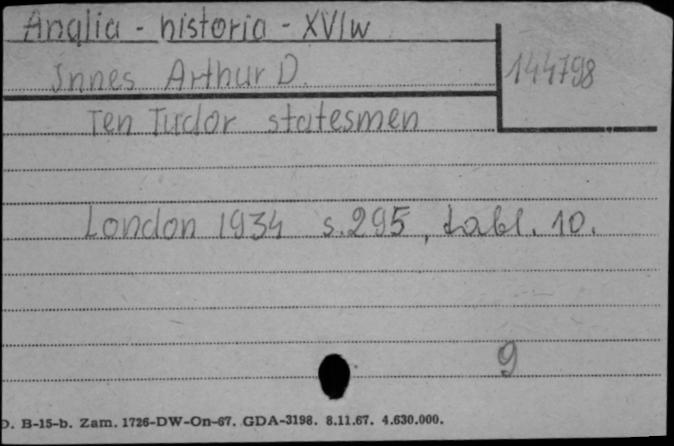 Anglia - historia - XVIw
Innes Arthur D.
144798
Ten Tudor statesmen
London 1934 s.295, tabl. 10.
9
D. B-15-b. Zam. 1726-DW-On-67. GDA-3198. 8.11.67. 4.630.000.